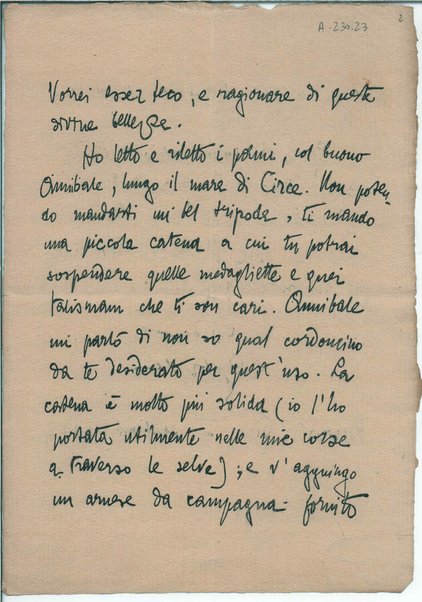 A.230.23
2
Vorrei esser teco, e ragionare di queste
divine bellezze.
Ho letto e riletto i poemi, col buono
Annibale, lungo il mare di Circe. Non poten-
do mandarti un bel tripode, ti mando
una piccola catena a cui tu potrai
sospendere quelle medagliette e quei
talismani che ti son cari. Annibale
mi parlò di non so qual cordoncino
da te desiderato per quest'uso. La
catena è molto più solida (io l'ho
portata utilmente nelle mie corse
a traverso le selve); e v'aggiungo
un arnese da campagna fornito